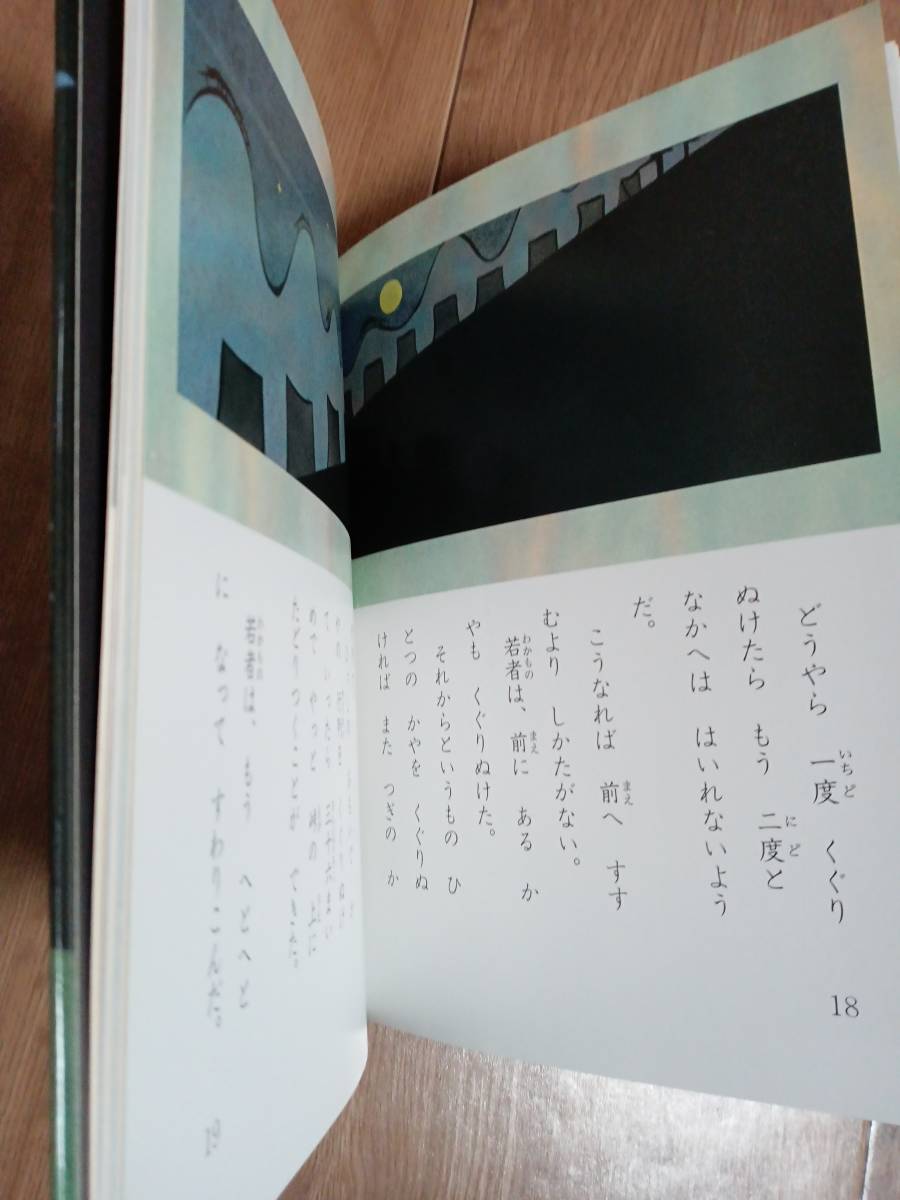 どうやら 一度 くぐり
ぬけたら もう 二度と
なかへは はいれないよう
だ。
こうなれば 前へ すす
むより しかたがない。
若者は、前に ある か
やも くぐりぬけた。
それからというもの ひ
とつの かやを くぐりぬ
ければ また つぎの か
めて やっと 畳の 上に
たどりつくことが できた。
若者は、もう へとへと
に なって すわりこんだ。
18
19